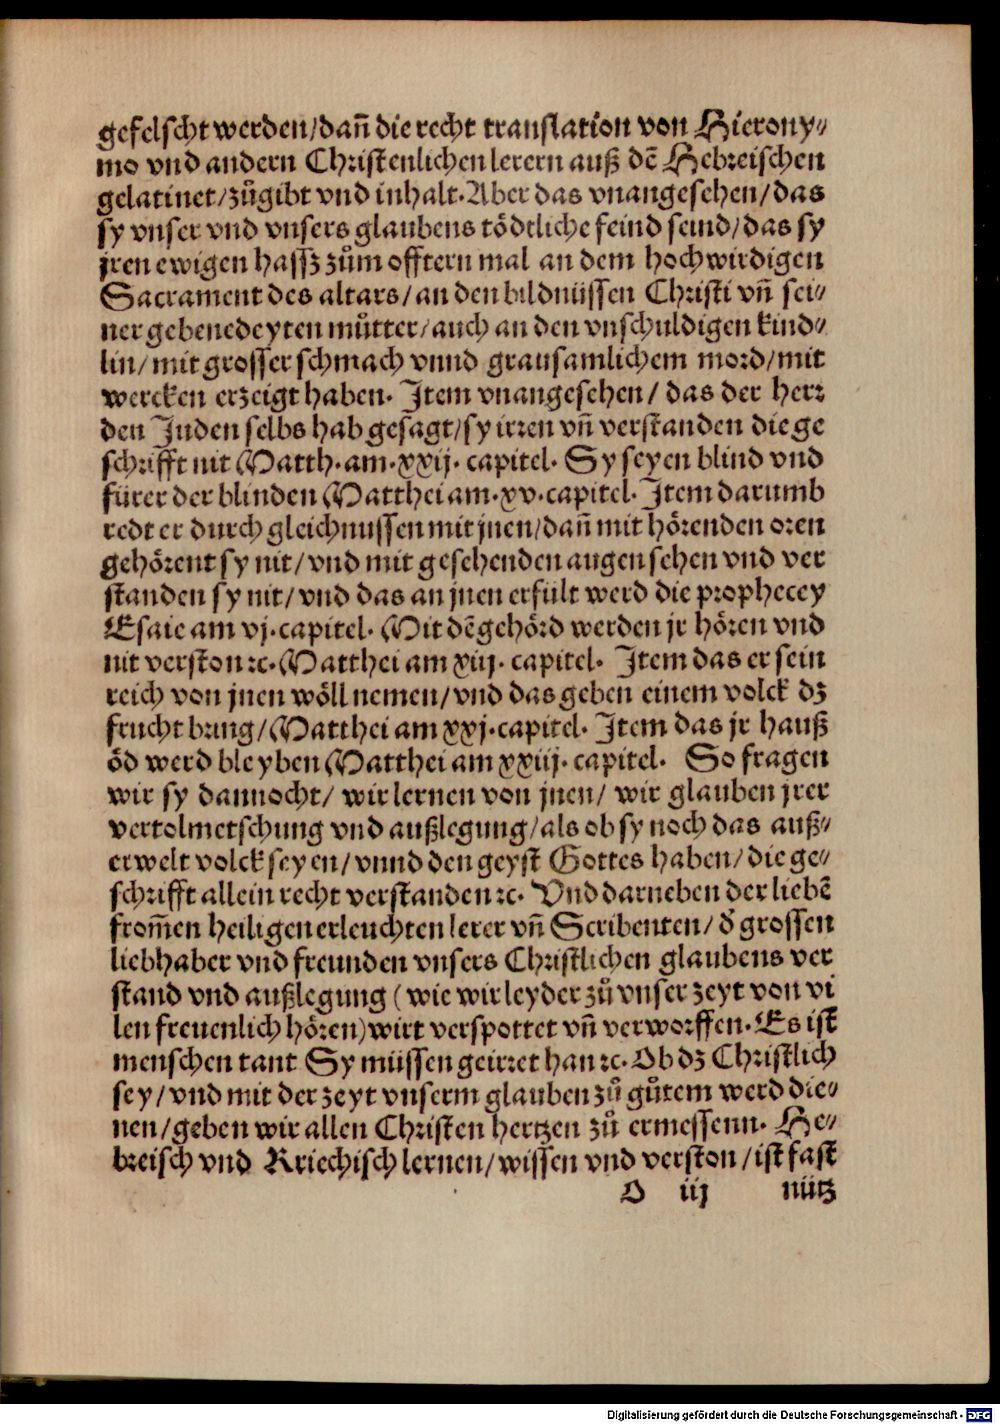 gefelscht werden/dañ die recht translation von Hierony⸗
mo vnd andern Christenlichen lerern auß dẽ Hebreischen
gelatinet/zůgibt vnd inhalt. Aber das vnangesehen/das
sy vnser vnd vnsers glaubens tödtliche feind seind/das sy
jren ewigen hassz zům offtern mal an dem hochwirdigen
Sacrament des altars/an den bildnüssen Christi vñ sei⸗
ner gebenedeyten můtter/auch an den vnschuldigen kind⸗
lin/mit grosser schmach vnnd grausamlichem mord/mit
wercken erzeigt haben. Item vnangesehen/das der herr
den Juden selbs hab gesagt/sy irren vñ verstanden die ge
schrifft nit Matth.am.xxij.capitel. Sy seyen blind vnd
fürer der blinden Matthei am.xv.capitel. Item darumb
redt er durch gleichnussen mit jnen/dañ mit hörenden oren
gehörent sy nit/vnd mit gesehenden augen sehen vnd ver
standen sy nit/vnd das an jnen erfült werd die prophecey
Esaie am vj.capitel. Mit dẽ gehörd werden jr hören vnd
nit verston ꝛc. Matthei am xiij.capitel. Item das er sein
reich von jnen wöll nemen/vnd das geben einem volck dz
frucht bring/Matthei am xxj.capitel. Item das jr hauß
öd werd bleyben Matthei am xxiij.capitel. So fragen
wir sy dannocht/wir lernen von jnen/wir glauben jrer
vertolmetschung vnd außlegung/als ob sy noch das auß⸗
erwelt volck seyen/vnnd den geyst Gottes haben/die ge⸗
schrifft allein recht verstanden ꝛc. Vnd darneben der liebẽ
from̃en heiligen erleuchten lerer vñ Scribenten/d̾ grossen
liebhaber vnd freunden vnsers Christlichen glaubens ver
stand vnd außlegung (wie wir leyder zů vnser zeyt von vi
len freuenlich hören) wirt verspottet vñ verworffen. Es ist
menschen tant Sy müssen geirret han ꝛc. Ob dz Christlich
sey/vnd mit der zeyt vnserm glauben zů gůtem werd die⸗
nen/geben wir allen Christen hertzen zů ermessenn. He⸗
breisch vnd Kriechisch lernen/wissen vnd verston/ist fast
O iij nütz
Digitalisierung gefördert durch die Deutsche Forschungsgemeinschaft - DFG